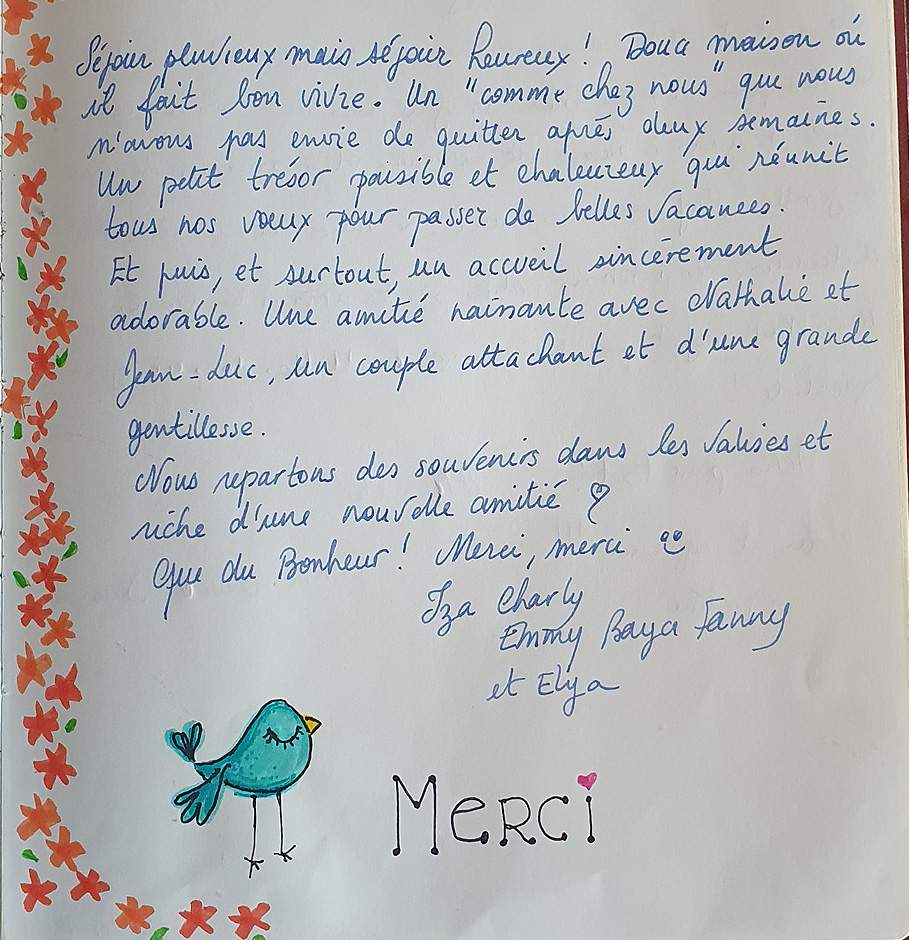 Séjour pluvieux mais séjour heureux ! Doua maison où
il fait bon vivre. Un "comme chez nous" que nous
n'avons pas envie de quitter après deux semaines.
Un petit trésor paisible et chaleureux qui réunit
tous nos vœux pour passer de belles vacances.
Et puis, et surtout, un accueil sincèrement
adorable. Une amitié naissante avec Nathalie et
Jean-Luc, un couple attachant et d'une grande
gentillesse.
Nous repartons des souvenirs dans les valises et
riche d'une nouvelle amitié
Que du Bonheur ! Merci, merci
Iza Charly
Emmy Baya Fanny
et Elya
Merci